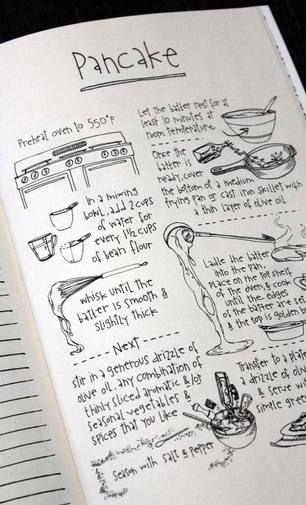 Pancake
Preheat oven to 550°F
in a mixing
bowl, add 2 cups
of water for
every 1 1/2 cups
of bean flour
whisk until the
batter is smooth &
slightly thick
NEXT
stir in a generous drizzle of
olive oil, any combination of
thinly sliced aromatic &/or
seasonal vegetables &
spices that you like
season with salt & pepper
Let the batter rest for at
least 10 minutes at
room temperature
Once the
batter is
ready, cover
the bottom of a medium
frying pan or cast iron skillet with
a thin layer of olive oil
Ladle the batter
into the pan.
Place on the top shelf
of the oven, & cook
until the edges
of the batter are
& the top is golden
Transfer to a
a drizzle of
& serve
simple gree